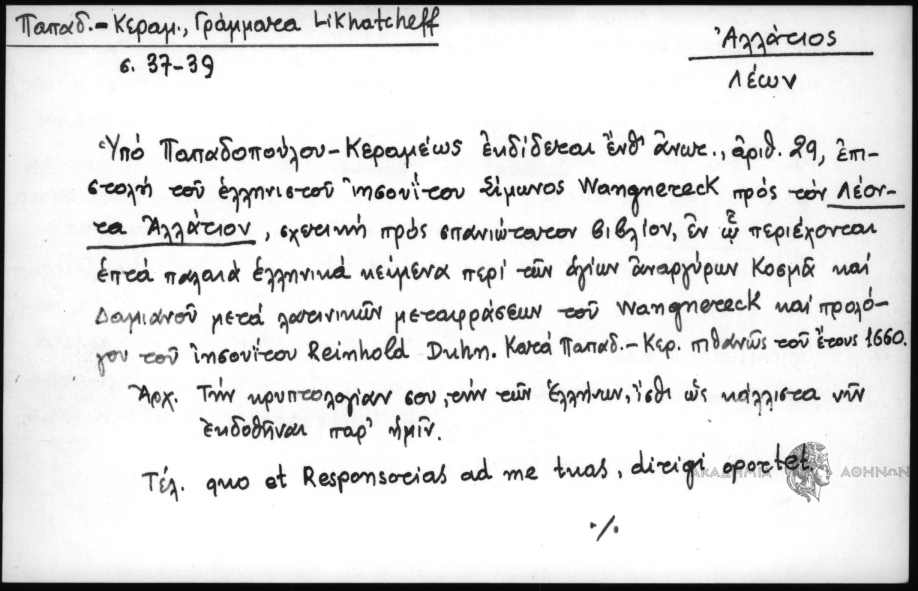 Παπαδ.-Κεραμ., Γράμματα Likhatcheff
σ. 37-39
Ἀλλάτιος
Λέων
Ὑπό Παπαδοπούλου-Κεραμέως ἐκδίδεται ἔνθ' ἄνωτ., ἀριθ. 29, ἐπι-
στολή τοῦ ἑλληνιστοῦ ἰησουΐτου Σίμωνος Wangnereck πρός τόν Λέον-
τα Ἀλλάτιον, σχετική πρός σπανιώτατον βιβλίον, ἐν ᾧ περιέχονται
ἑπτά παλαιά ἑλληνικά κείμενα περί τῶν ἁγίων ἀναργύρων Κοσμᾶ καί
Δαμιανοῦ μετά λατινικῶν μεταφράσεων τοῦ Wangnereck καί προλό-
γου τοῦ ἰησουΐτου Reinhold Duhn. Κατά Παπαδ.-Κερ. πιθανῶς τοῦ ἔτους 1660.
Ἀρχ. Τήν κρυπτολογίαν σου, τήν τῶν Ἑλλήνων, ἴσθι ὡς κάλλιστα νῦν
ἐκδοθῆναι παρ' ἡμῖν.
Τέλ. quo et Responsorias ad me tuas, dirigi oportet.
ΑΚΑΔΗΜΙΑ ΑΘΗΝΩΝ
·/.